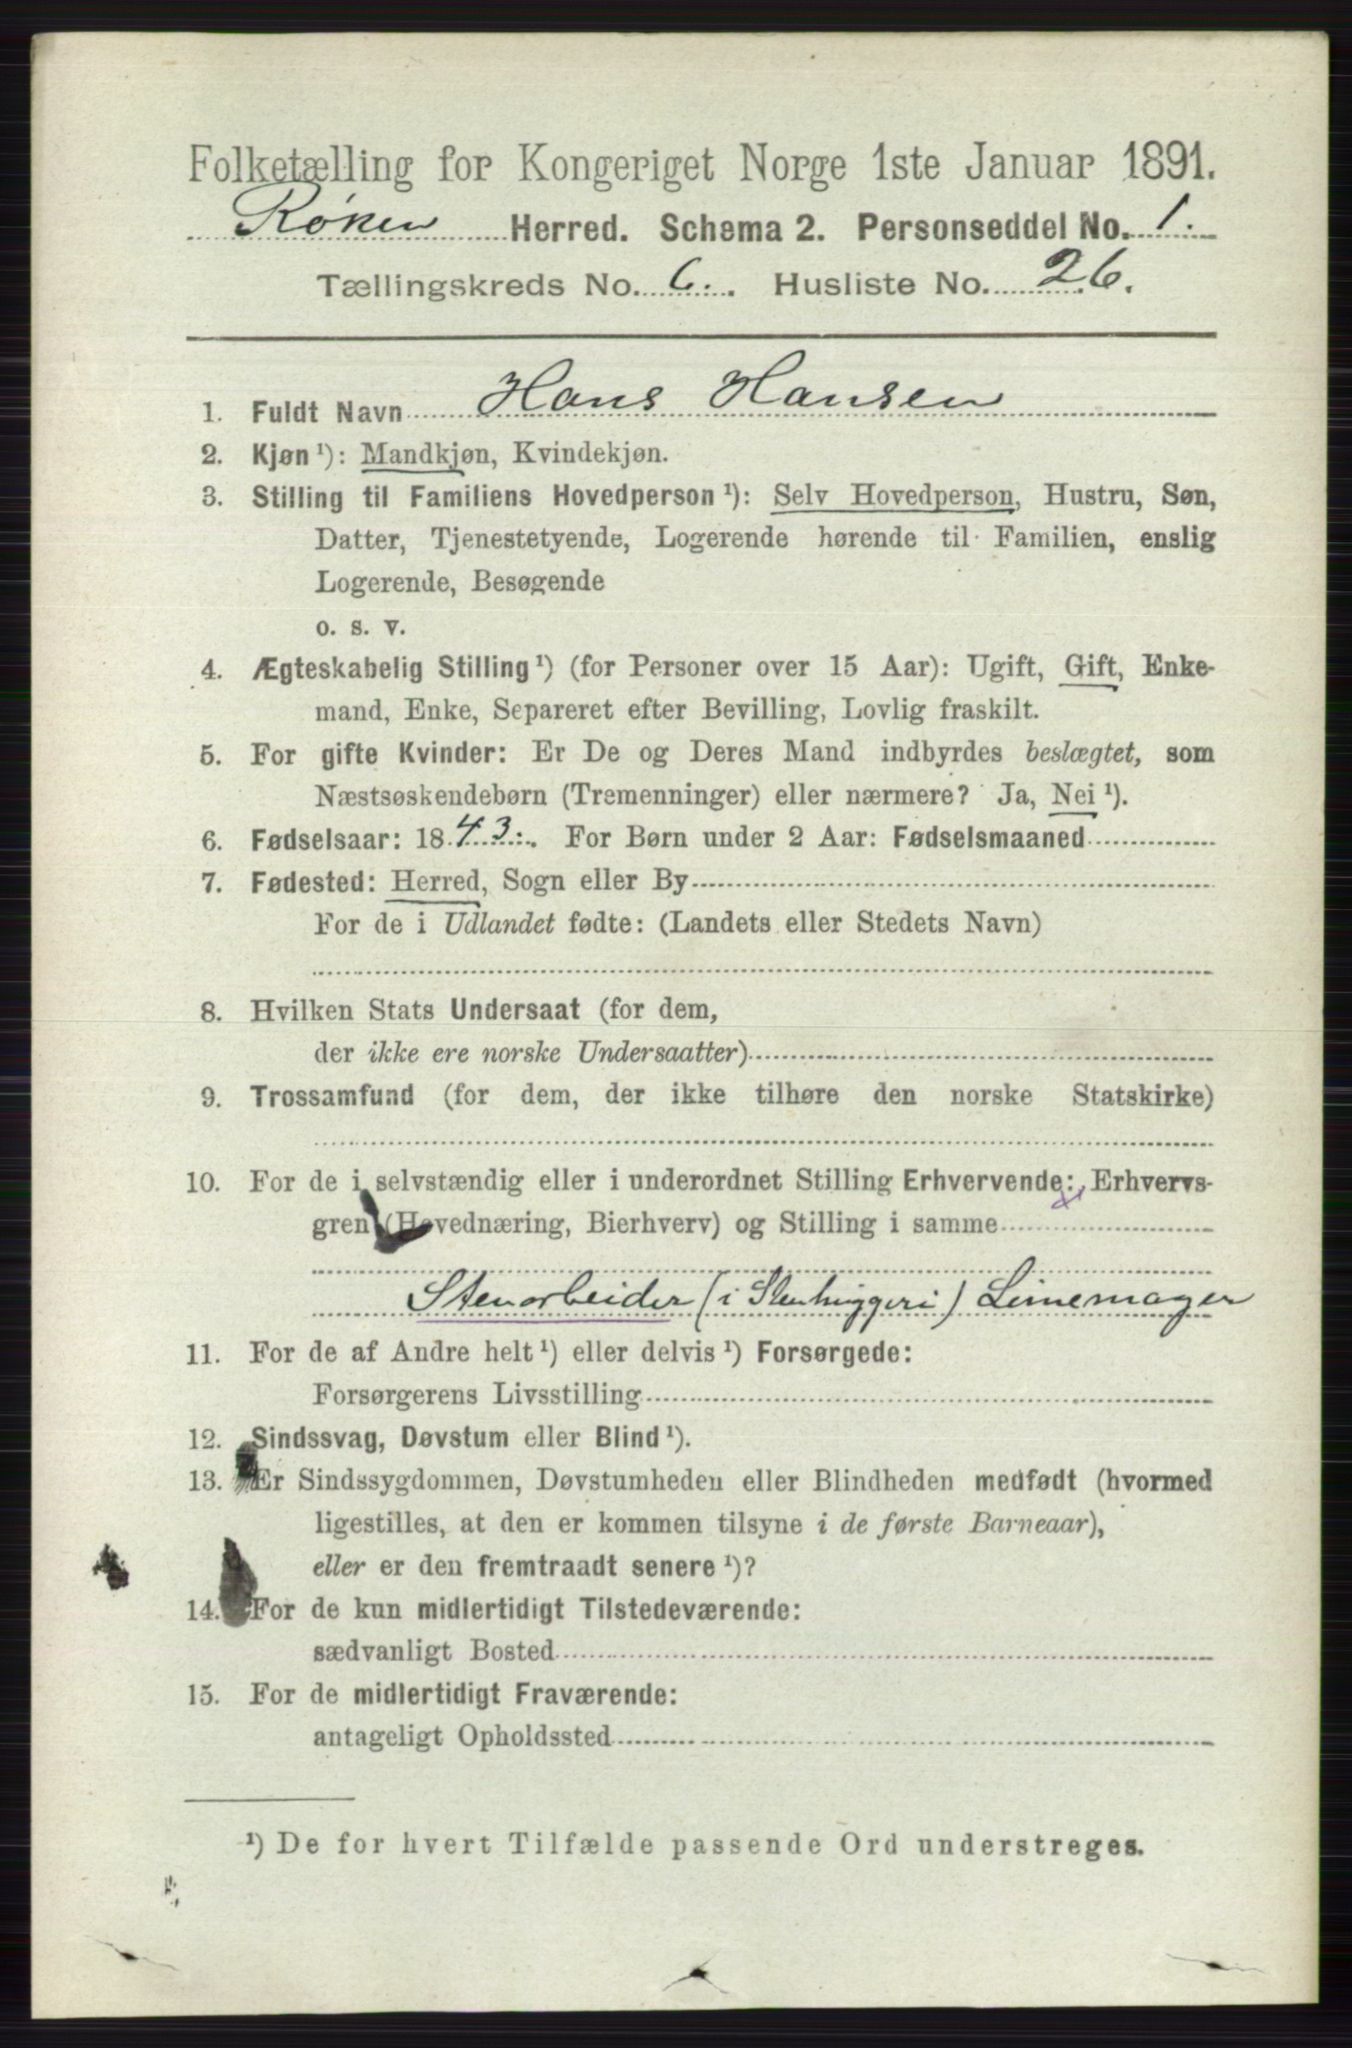 Folketælling for Kongeriget Norge 1ste Januar 1891.
Røken Herred. Schema 2. Personseddel No. 1.
Tællingskreds No. 6. Husliste No. 26.
1. Fuldt Navn Hans Hansen
2. Kjøn ¹): Mandkjøn, Kvindekjøn.
3. Stilling til Familiens Hovedperson ¹): Selv Hovedperson, Hustru, Søn,
Datter, Tjenestetyende, Logerende hørende til Familien, enslig
Logerende, Besøgende
o. s. v.
4. Ægteskabelig Stilling ¹) (for Personer over 15 Aar): Ugift, Gift, Enke-
mand, Enke, Separeret efter Bevilling, Lovlig fraskilt.
5. For gifte Kvinder: Er De og Deres Mand indbyrdes beslægtet, som
Næstsøskendebørn (Tremenninger) eller nærmere? Ja, Nei ¹).
6. Fødselsaar: 1843. For Børn under 2 Aar: Fødselsmaaned
7. Fødested: Herred, Sogn eller By
For de i Udlandet fødte: (Landets eller Stedets Navn)
8. Hvilken Stats Undersaat (for dem,
der ikke ere norske Undersaatter)
9. Trossamfund (for dem, der ikke tilhøre den norske Statskirke)
10. For de i selvstændig eller i underordnet Stilling Erhvervende: Erhvervs-
gren (Hovednæring, Bierhverv) og Stilling i samme
Stenarbeider (i Stenhuggeri) Limemager
11. For de af Andre helt ¹) eller delvis ¹) Forsørgede:
Forsørgerens Livsstilling
12. Sindssvag, Døvstum eller Blind ¹).
13. Er Sindssygdommen, Døvstumheden eller Blindheden medfødt (hvormed
ligestilles, at den er kommen tilsyne i de første Barneaar),
eller er den fremtraadt senere ¹)?
14. For de kun midlertidigt Tilstedeværende:
sædvanligt Bosted
15. For de midlertidigt Fraværende:
antageligt Opholdssted
¹) De for hvert Tilfælde passende Ord understreges.